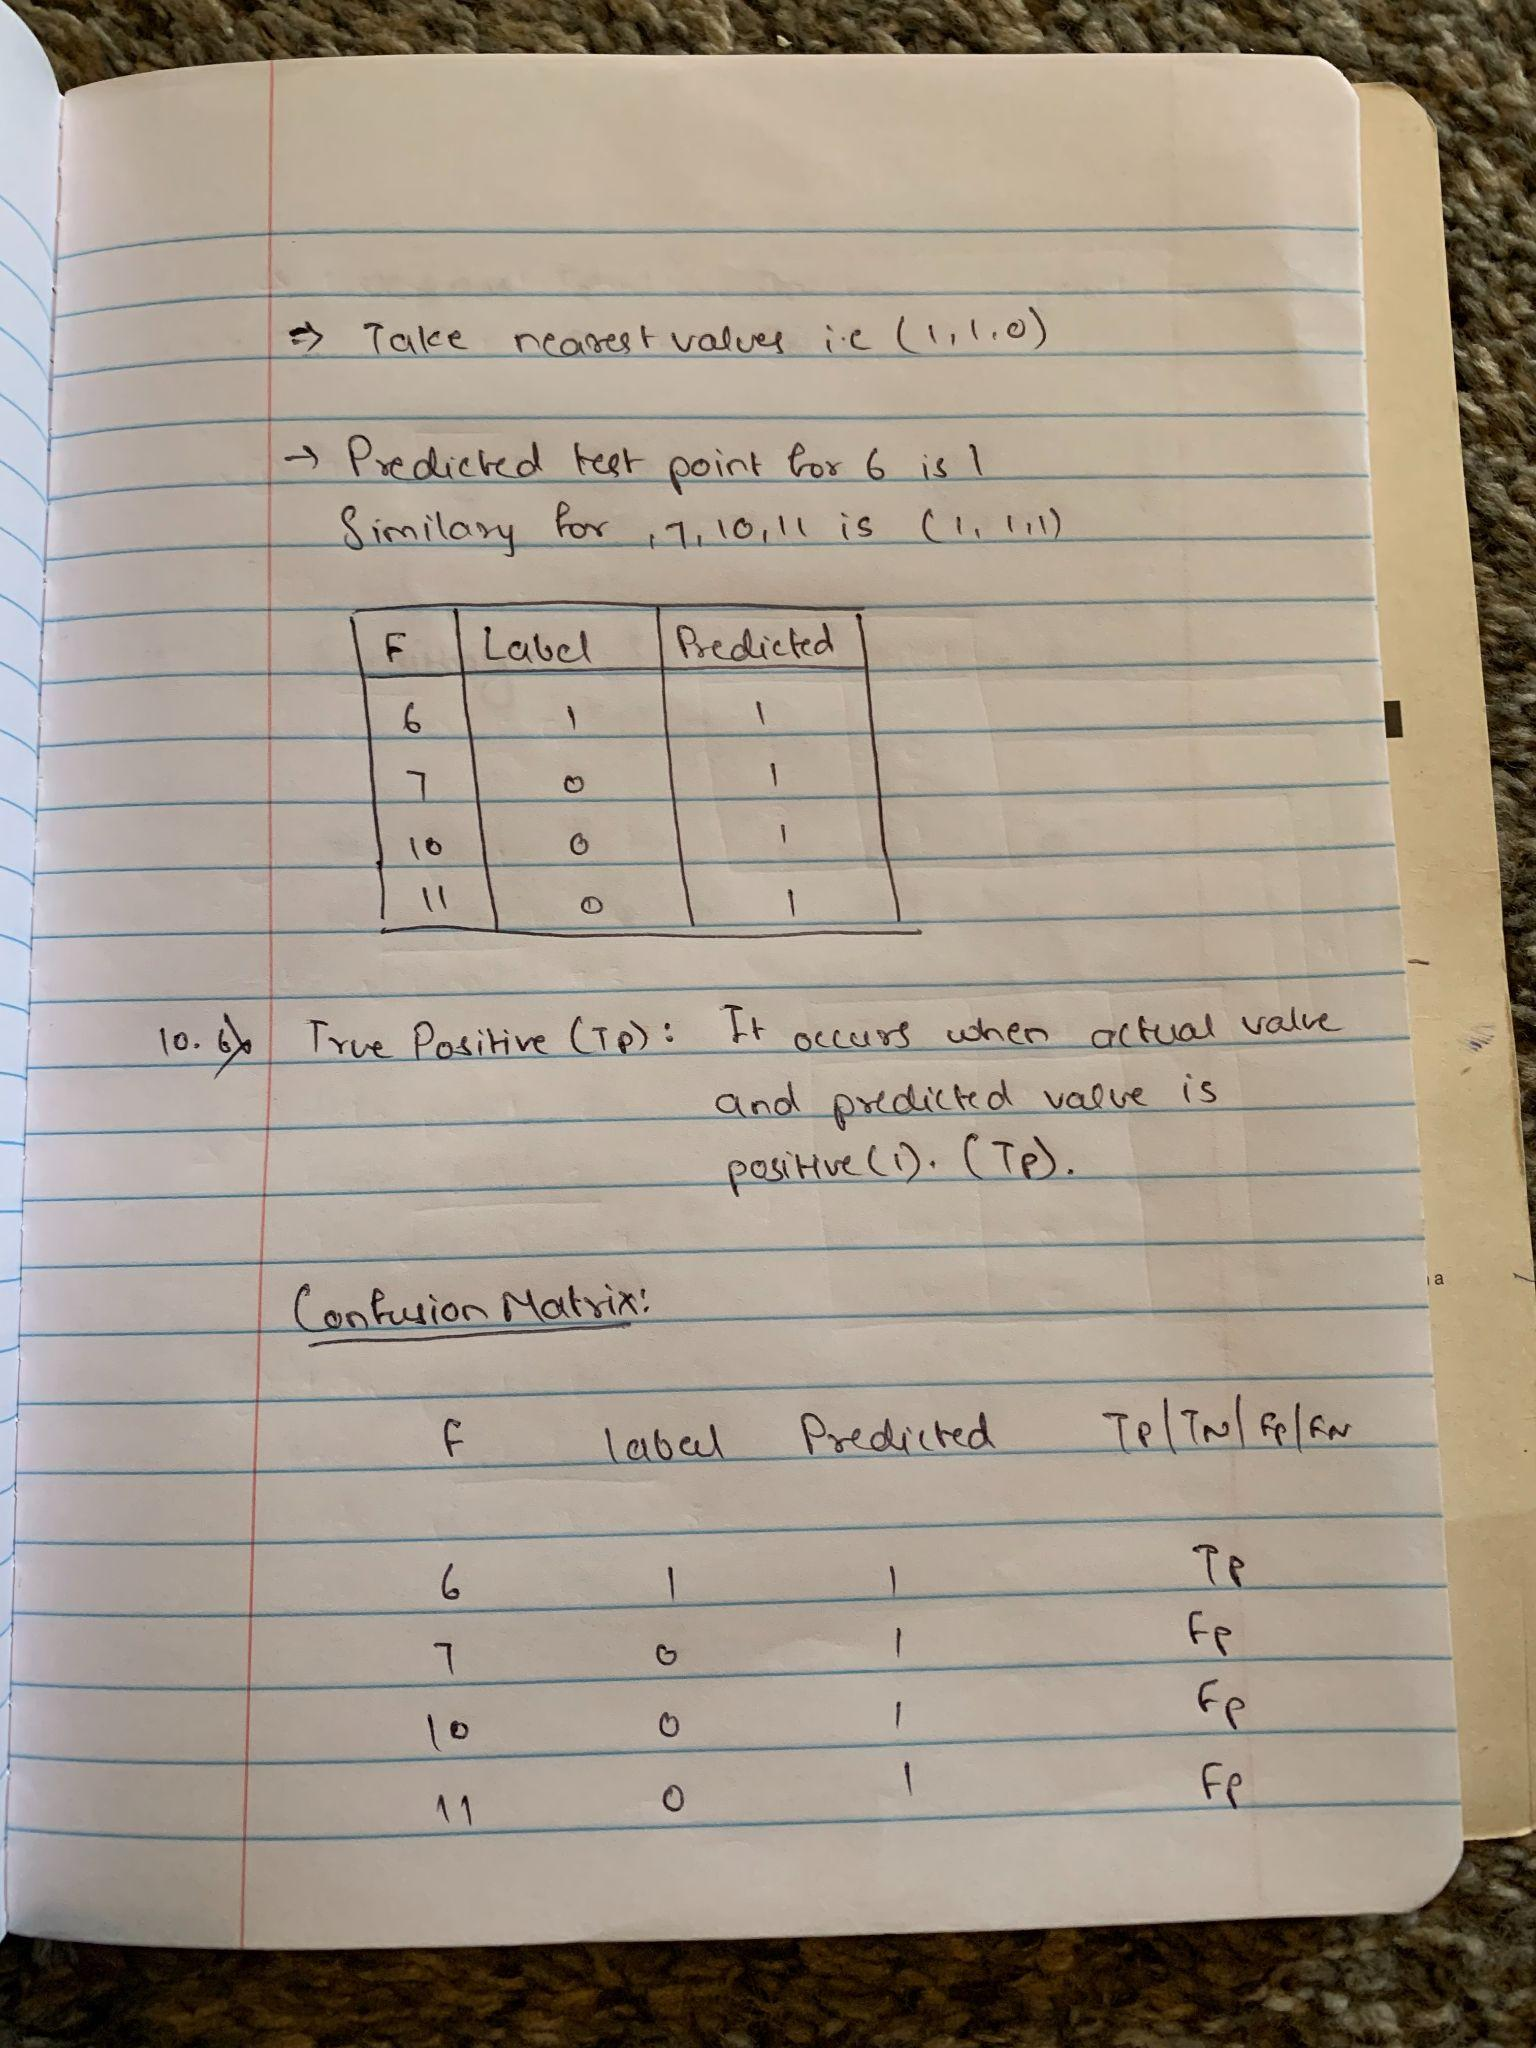 ⇒ Take nearest values i.e (1,1,0)
→ Predicted test point for 6 is 1
Similary for ,7,10,11 is (1,1,1)
F Label Predicted
6 1 1
7 0 1
10 0 1
11 0 1
10. b) True Positive (TP): It occurs when actual value
and predicted value is
positive(1). (TP).
Confusion Matrix:
F label Predicted TP/TN/FP/FN
6 1 1 TP
7 0 1 FP
10 0 1 FP
11 0 1 FP
a